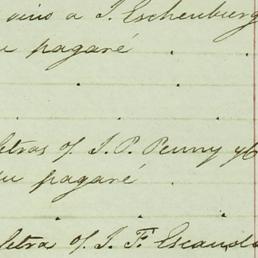 vino a J. Eschenburg
su pagaré
letras of J. P. Penny y C
su pagaré
letra of J. F. Escando